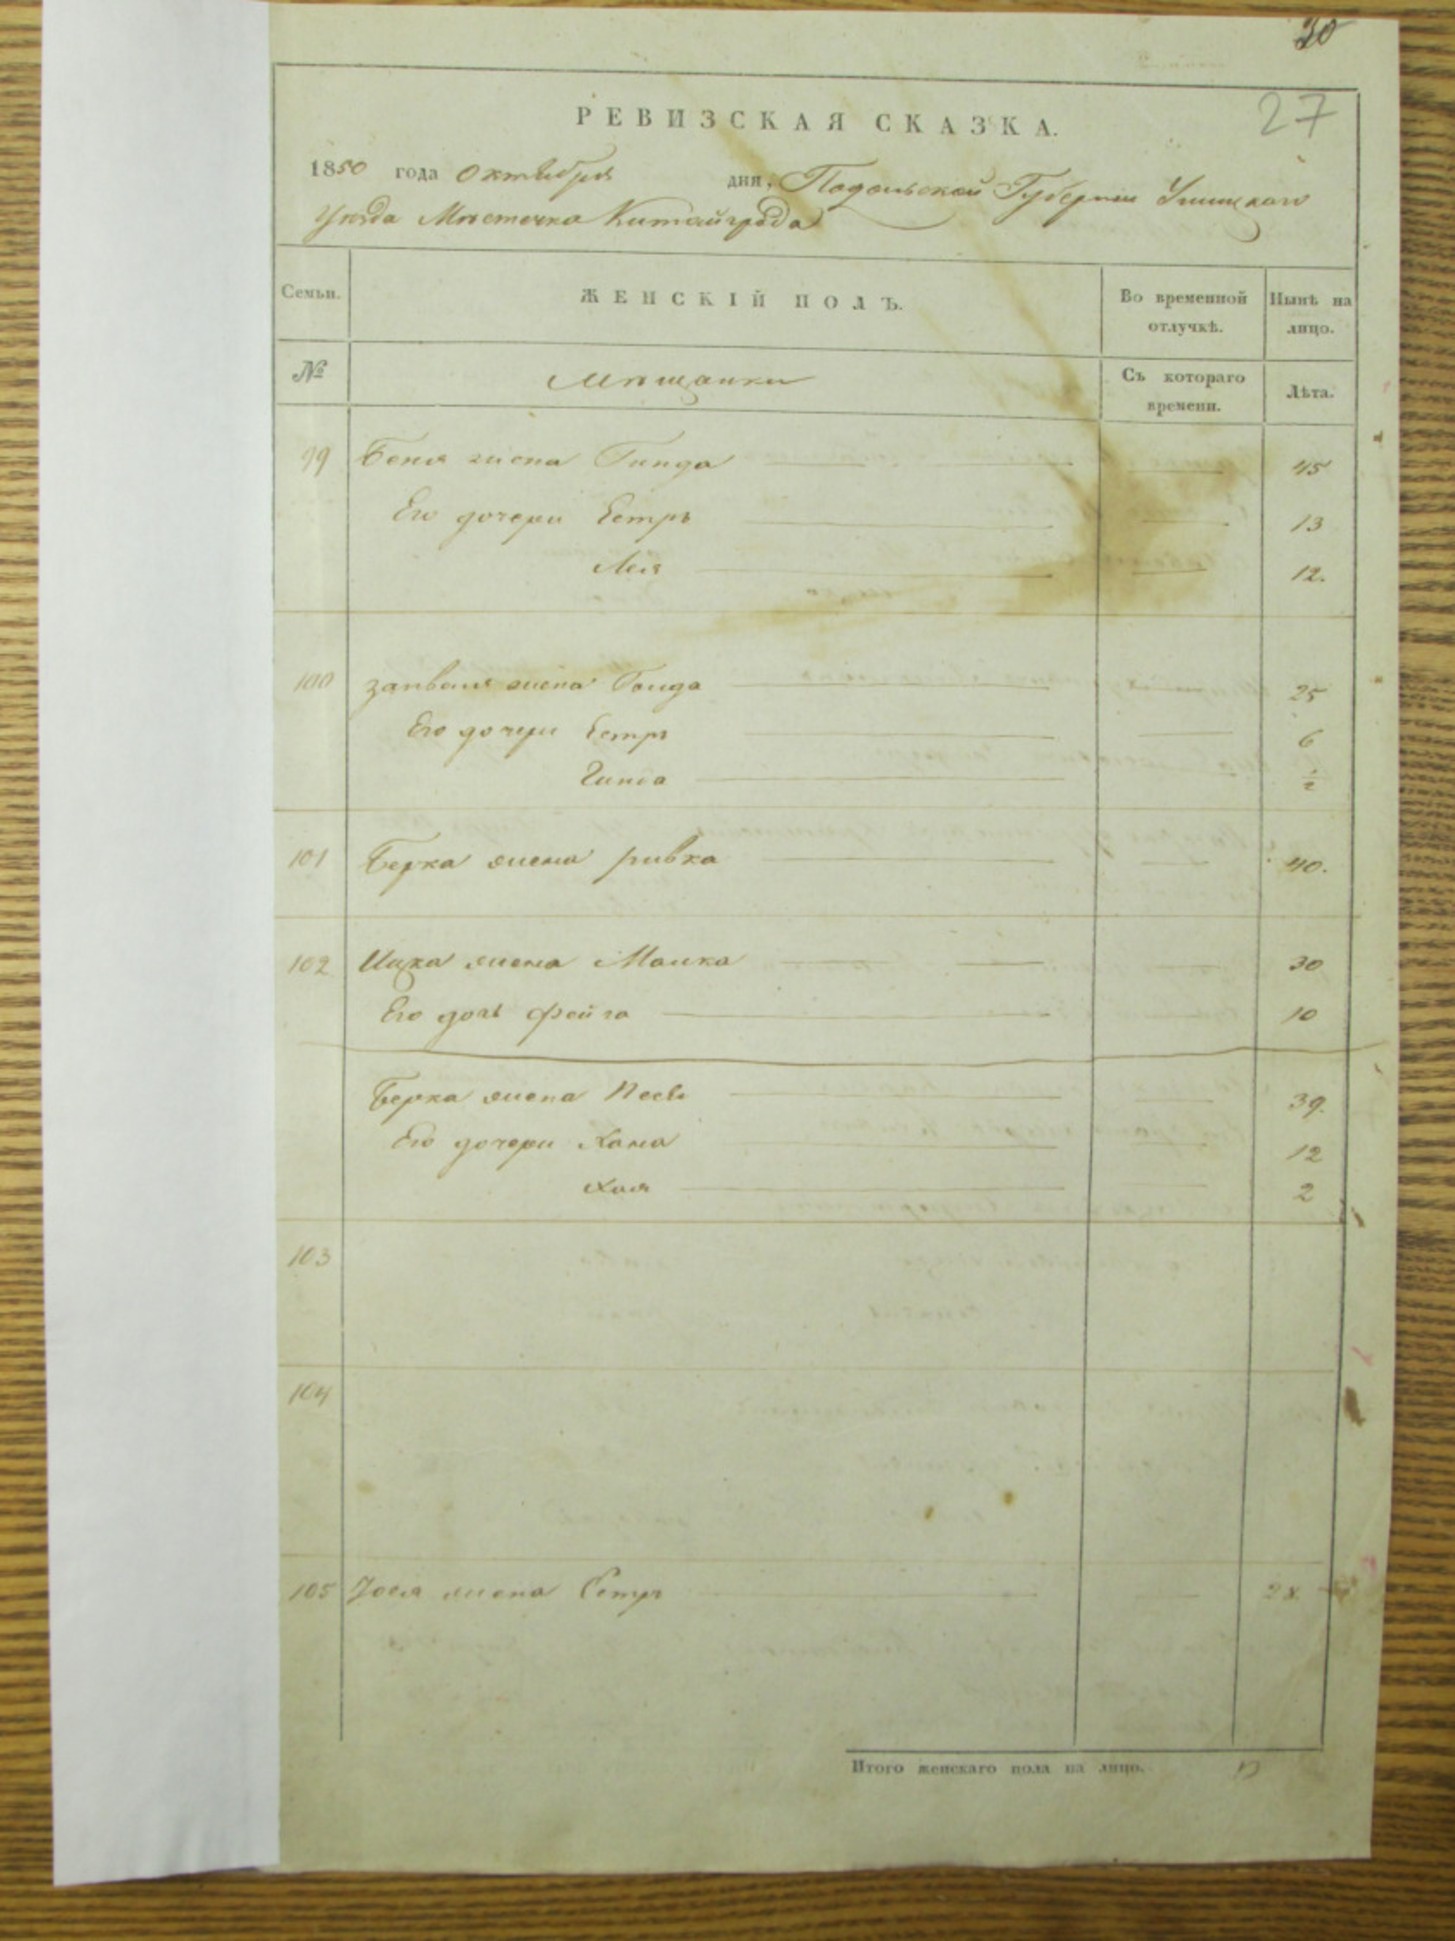 30
27
РЕВИЗСКАЯ СКАЗКА.
1850 года Октября дня, Подольской Губернии Ушицкого
Уѣзда Мѣстечка Китайгрода
Семьи. ЖЕНСКІЙ ПОЛЪ. Во временной отлучкѣ. Нынѣ на лицо.
№ Мѣщанки Съ котораго времени. Лѣта.
99 Беня жена Гинда 45
Его дочери Естръ 13
Лея 12.
100 жена Голда 25
Его дочери Естръ 6
½
101 Берка жена ривка 40.
102 Ицка жена Малка 30
Его дочь фейга 10
Берка жена Песя 39.
Его дочери Хана 12
Хая 2
103
104
105 Іося жена Естръ 28
Итого женскаго пола на лицо. 13